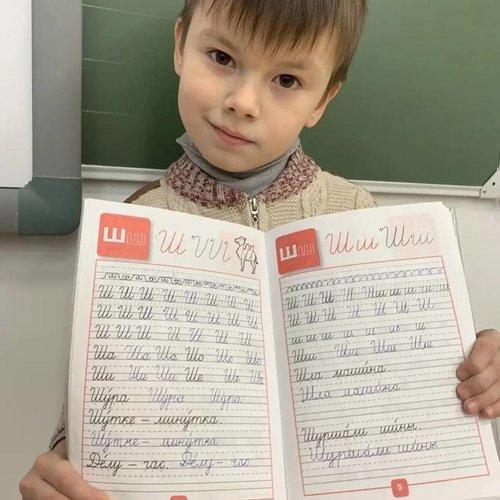 Шш Ш Ш Ш
Ш Ш Ш Ш Ш Ш Ш Ш Ш
Ш Ш Ш Ш Ш Ш Ш Ш
Ш Ш Ш Ш Ш Ш Ш
Ша Ша Ша Шо Шо Шо
Ши Ши Ши Ше Ше Ше
Шу́ра Шу́ра Шу́ра
Шу́тке – мину́тка
Шу́тке – мину́тка
Де́лу – час. Де́лу – час
Шш Ш ш Ш ш
Ш Ш Ш Ш Ш ш ш ш ш ш
Ш Ш Ш Ш Ш Ш Ш Ш
ш ш ш ш ш ш ш
Шш Шш Шш Шш
Шла маши́на.
Шла маши́на.
Шурша́ли ши́ны.
Шурша́ли ши́ны
5